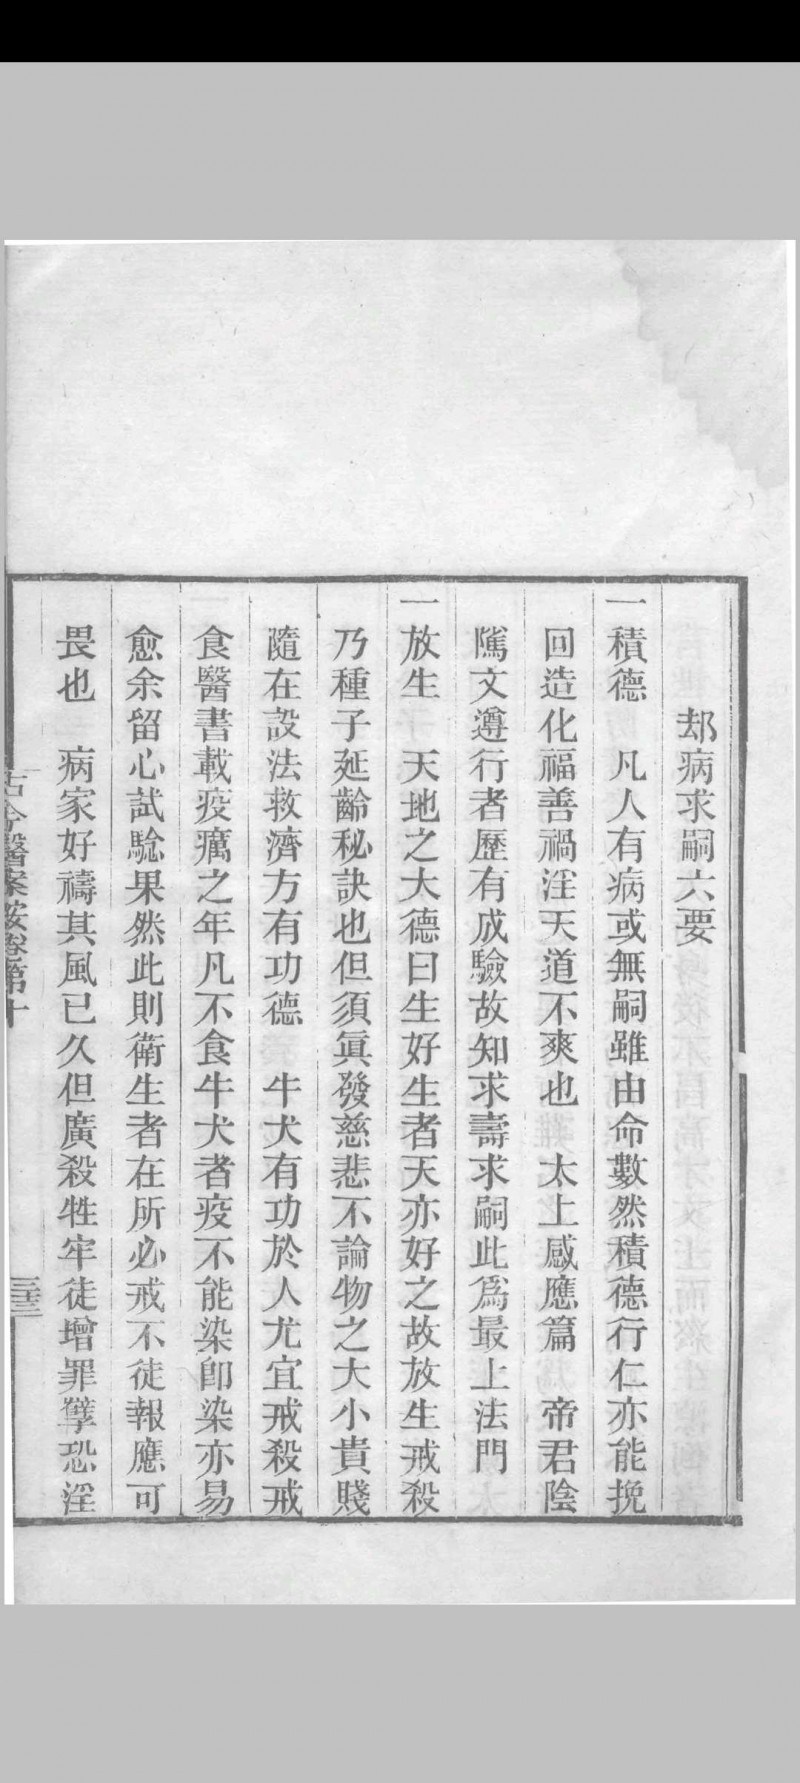 却病求嗣六要
一積德　凡人有病或無嗣雖由命數然積德行仁亦能挽
回造化福善禍淫天道不爽也　太上感應篇　帝君陰
隲文遵行者歷有成驗故知求壽求嗣此爲最上法門
一放生　天地之大德曰生好生者天亦好之故放生戒殺
乃種子延齡秘訣也但須眞發慈悲不論物之大小貴賤
隨在設法救濟方有功德　牛犬有功於人尤宜戒殺戒
食醫書載疫癘之年凡不食牛犬者疫不能染卽染亦易
愈余留心試騐果然此則衛生者在所必戒不徒報應可
畏也　病家好禱其風已久但廣殺牲牢徒增罪孽恐淫
古今醫案按卷第十
三十三